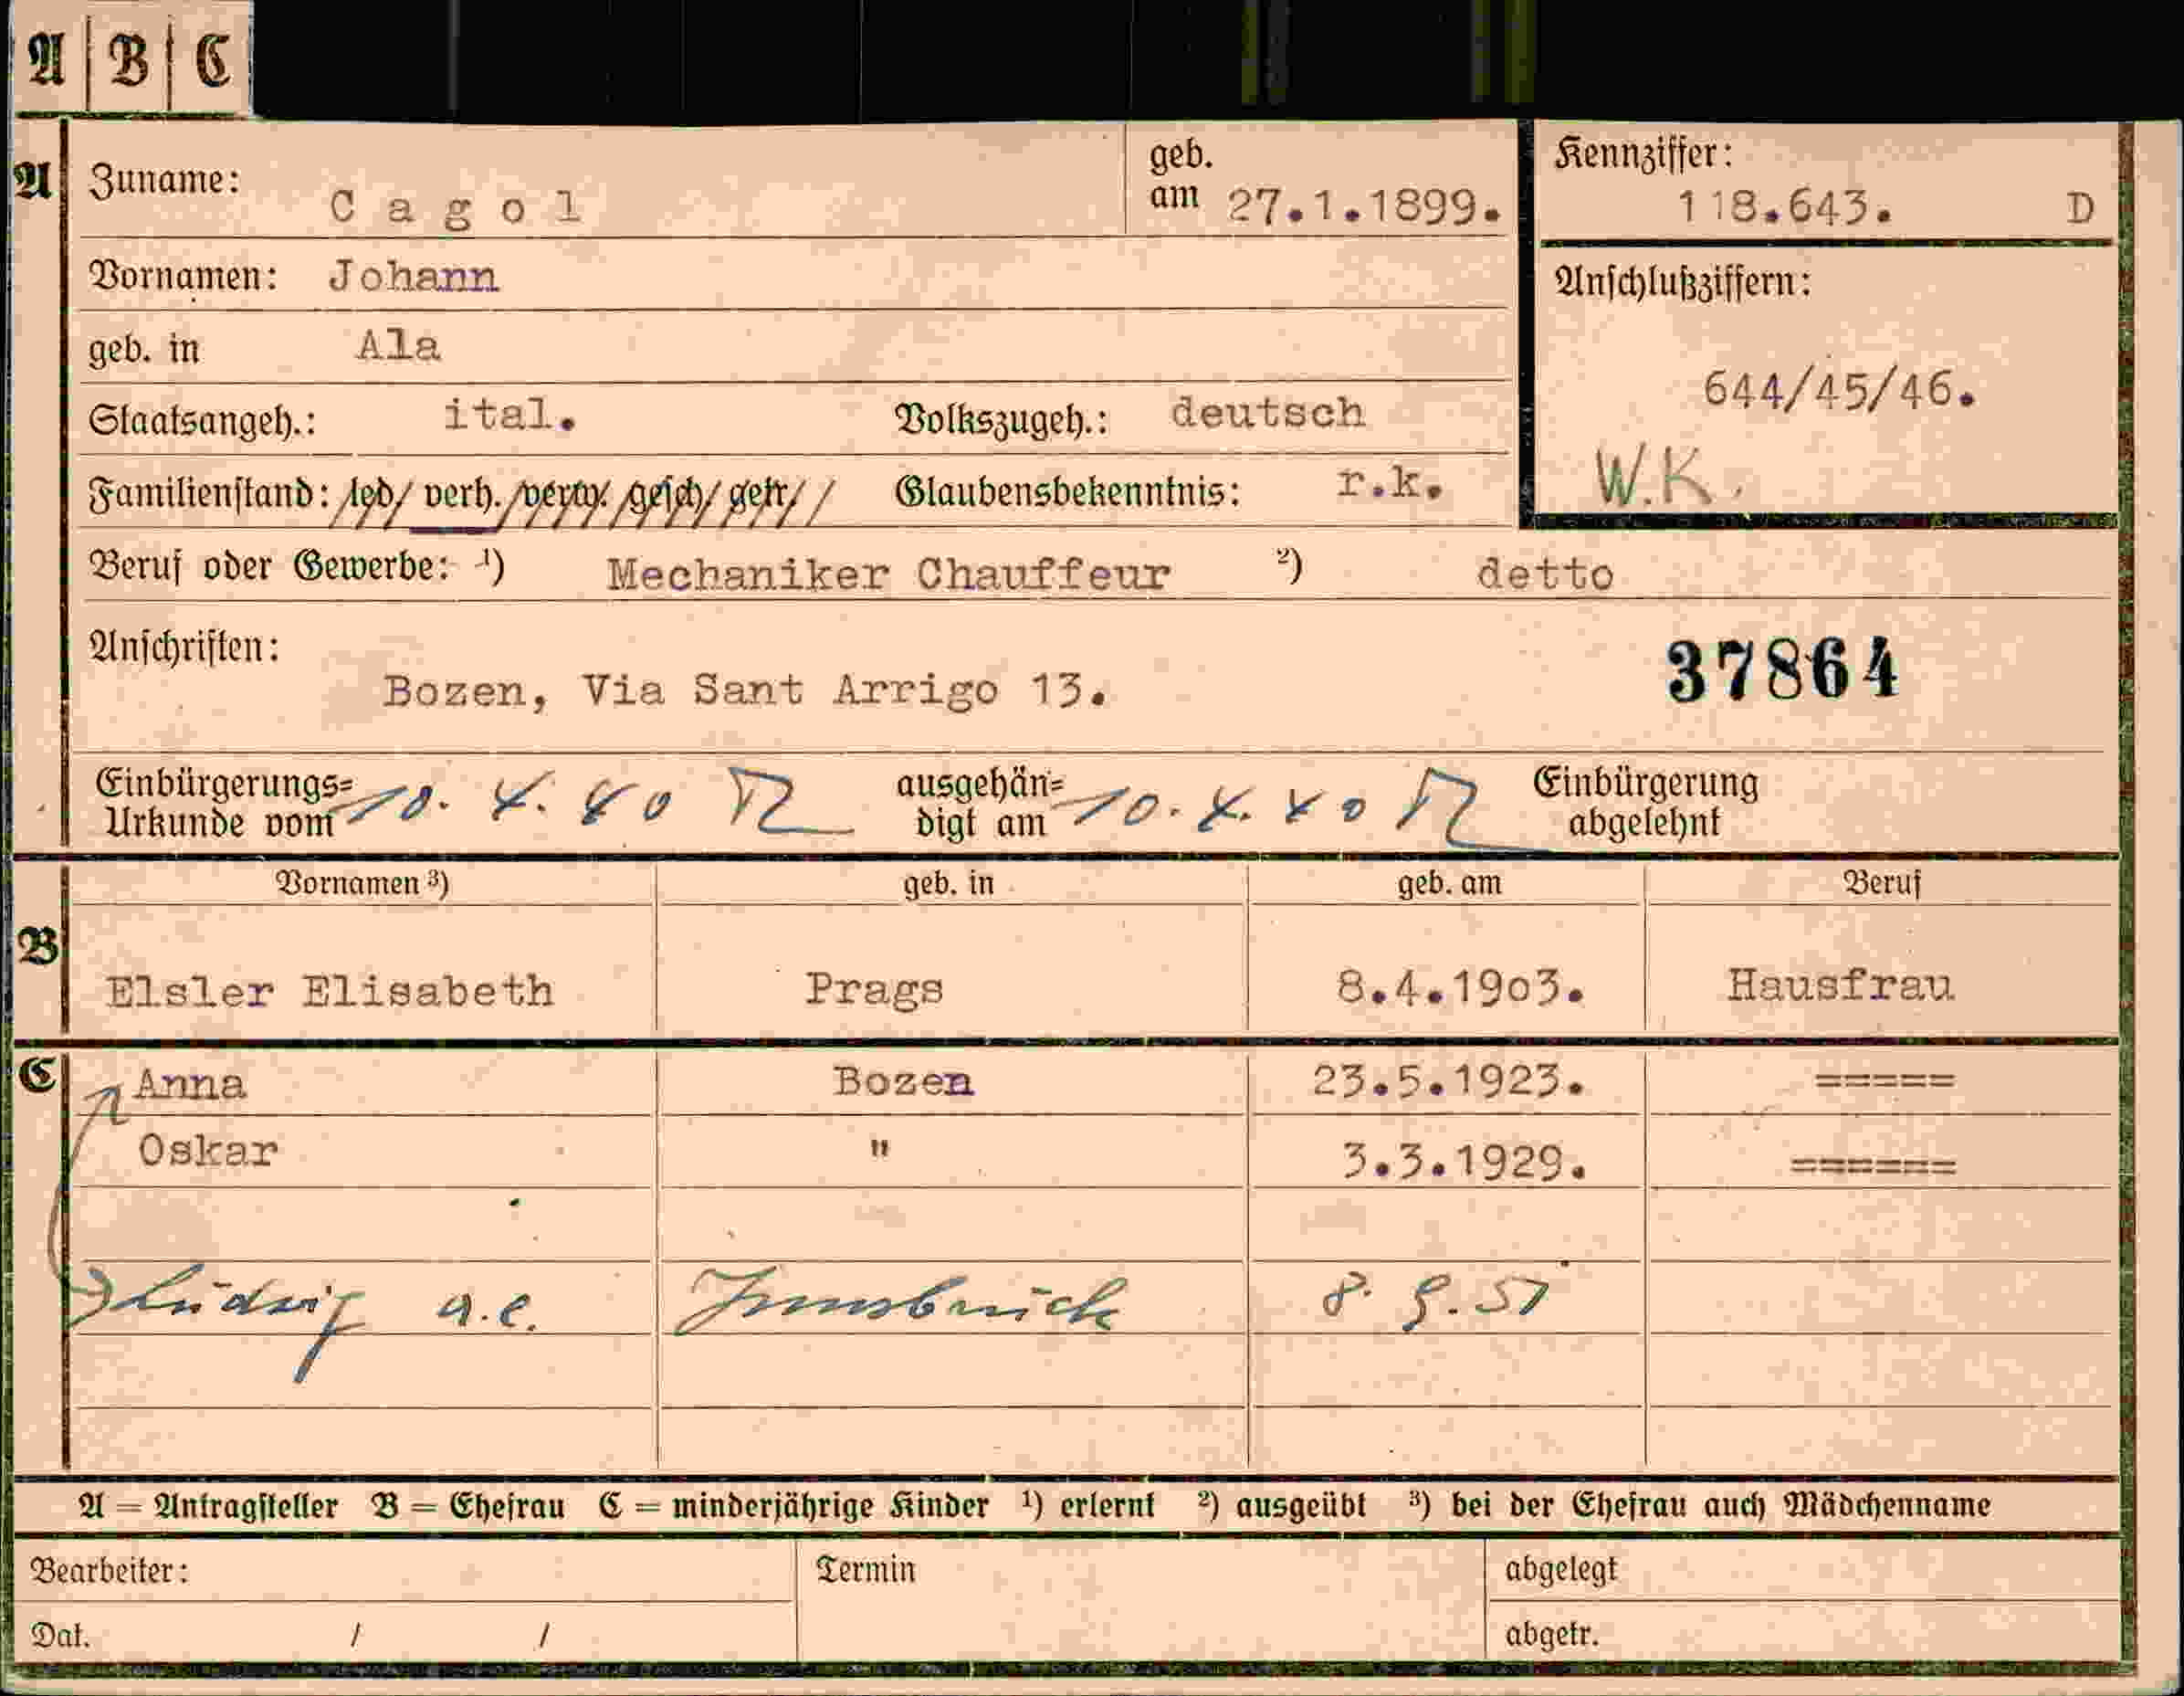 A | B | C
A Zuname: Cagol geb. am 27.1.1899. Kennziffer: 118.643. D
Vornamen: Johann
Anschlußziffern:
geb. in Ala
644/45/46.
Staatsangeh.: ital. Volkszugeh.: deutsch
W.K.
Familienstand: led/ verh. /verw. /gesch/ getr// Glaubensbekenntnis: r.k.
Beruf oder Gewerbe: ¹) Mechaniker Chauffeur ²) detto
Anschriften: 37864
Bozen, Via Sant Arrigo 13.
Einbürgerungs= ausgehän= Einbürgerung
Urkunde vom 10. X. 40 digt am 10. X. 40 abgelehnt
Vornamen ³) geb. in geb. am Beruf
B Elsler Elisabeth Prags 8.4.19o3. Hausfrau
C Anna Bozen 23.5.1923. =====
Oskar " 3.3.1929. ======
Ludwig a.e. Innsbruck
A = Antragsteller B = Ehefrau C = minderjährige Kinder ¹) erlernt ²) ausgeübt ³) bei der Ehefrau auch Mädchenname
Bearbeiter: Termin abgelegt
Dat. / / abgetr.